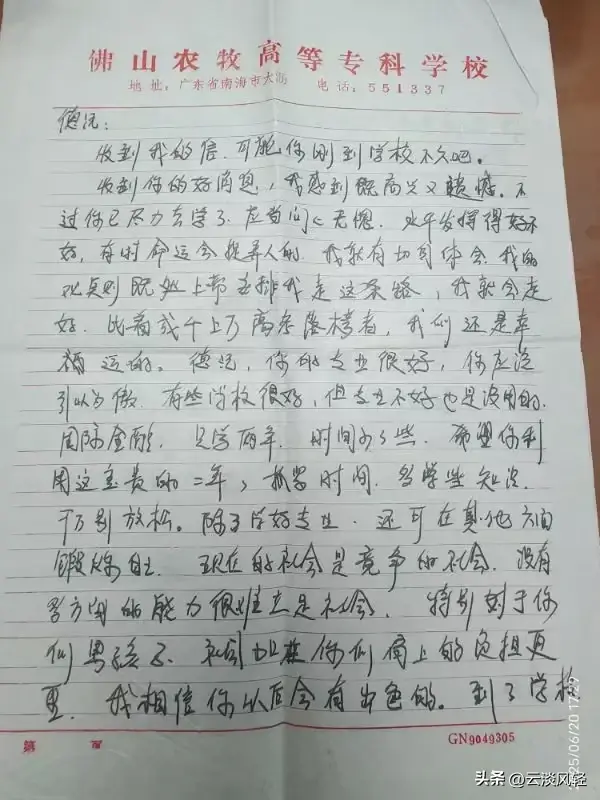 佛山农牧高等专科学校
地址：广东省南海市大沥 电话：551337
德沅：
收到我的信，可能你刚到学校不久吧。
收到你的好消息，我感到既高兴又 不
过你已尽力去学了，应当问心无愧。水平发挥得好不
好，有时命运会捉弄人的。我就有切身体会，我的
原则既然上帝安排我走这条路，我就会走
好。比着成千上万高考落榜者，我们还是幸
福 运的。德沅，你的专业很好，你应该
引以为傲。有些学校很好，但专业不好也是没用的。
国际金融，只学两年，时间少了些。希望你利
用这宝贵的二年，抓紧时间，多学些知识，
千万别放松。除了学好专业，还可在其他方面
锻炼自己。现在的社会是竞争的社会，没有
多方面的能力很难立足社会。特别对于你
们男孩子，社会加在你们肩上的负担更
重。我相信你以后会有出色的。到了学校
第 页
GN9049305
2025/06/20 17:29
头条 @云淡风轻